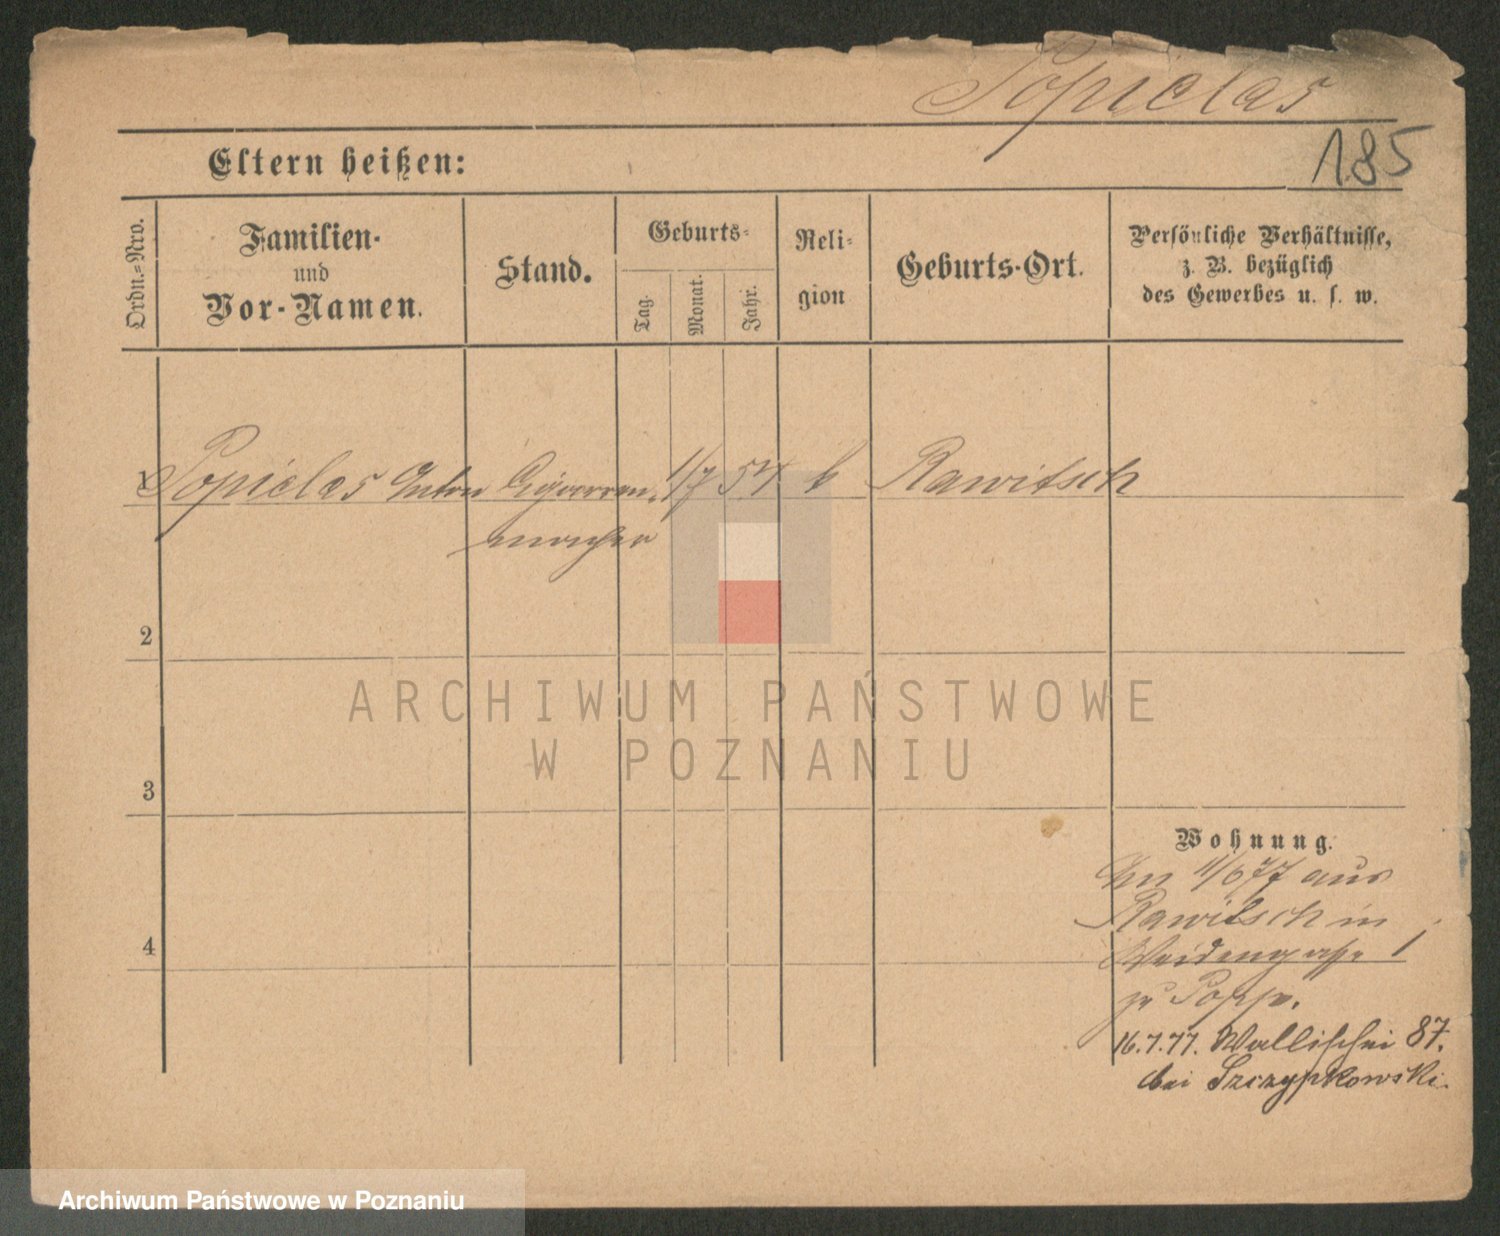 Popielas
185
Eltern heißen:
Ordn.=Nro.
Familien-
und
Vor-Namen.
Stand.
Geburts-
Tag.
Monat.
Jahr.
Reli-
gion
Geburts-Ort.
Persönliche Verhältnisse,
z. B. bezüglich
des Gewerbes u. s. w.
1 Popielas Anton Cigarren- 1/7 54 k Rawitsch
macher
2
3
4
Wohnung.
11/6 77 aus
Rawitsch in
Weidengasse 1
zu
16.7.77. Wallischei 87.
bei Szczypkowski.
ARCHIWUM PAŃSTWOWE
W POZNANIU
Archiwum Państwowe w Poznaniu